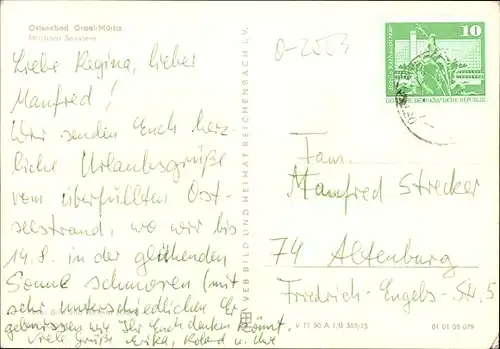 Ostseebad Graal-Müritz
Mitropa Seestern
Liebe Regina, lieber
Manfred!
Wir senden Euch herz-
liche Urlaubsgrüße
vom überfüllten Ost-
seestrand, wo wir bis
14.8. in der glühenden
Sonne schmoren (mit
sehr unterschiedlichen Er-
gebnissen wie Ihr Euch denken könnt.
Viele Grüße Erika, Roland u. Ute
VEB BILD UND HEIMAT REICHENBACH I. V.
10
DEUTSCHE DEMOKRATISCHE REPUBLIK
Fam.
Manfred Strecker
74 Altenburg
Friedrich-Engels-Str. 5
V 11 50 A 1/B 365/75 01 01 05 079